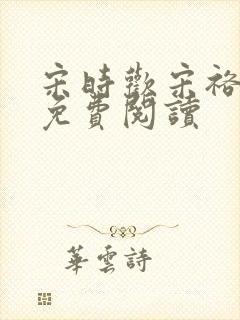 宋時歡宋裕
免費閱讀
華雲詩